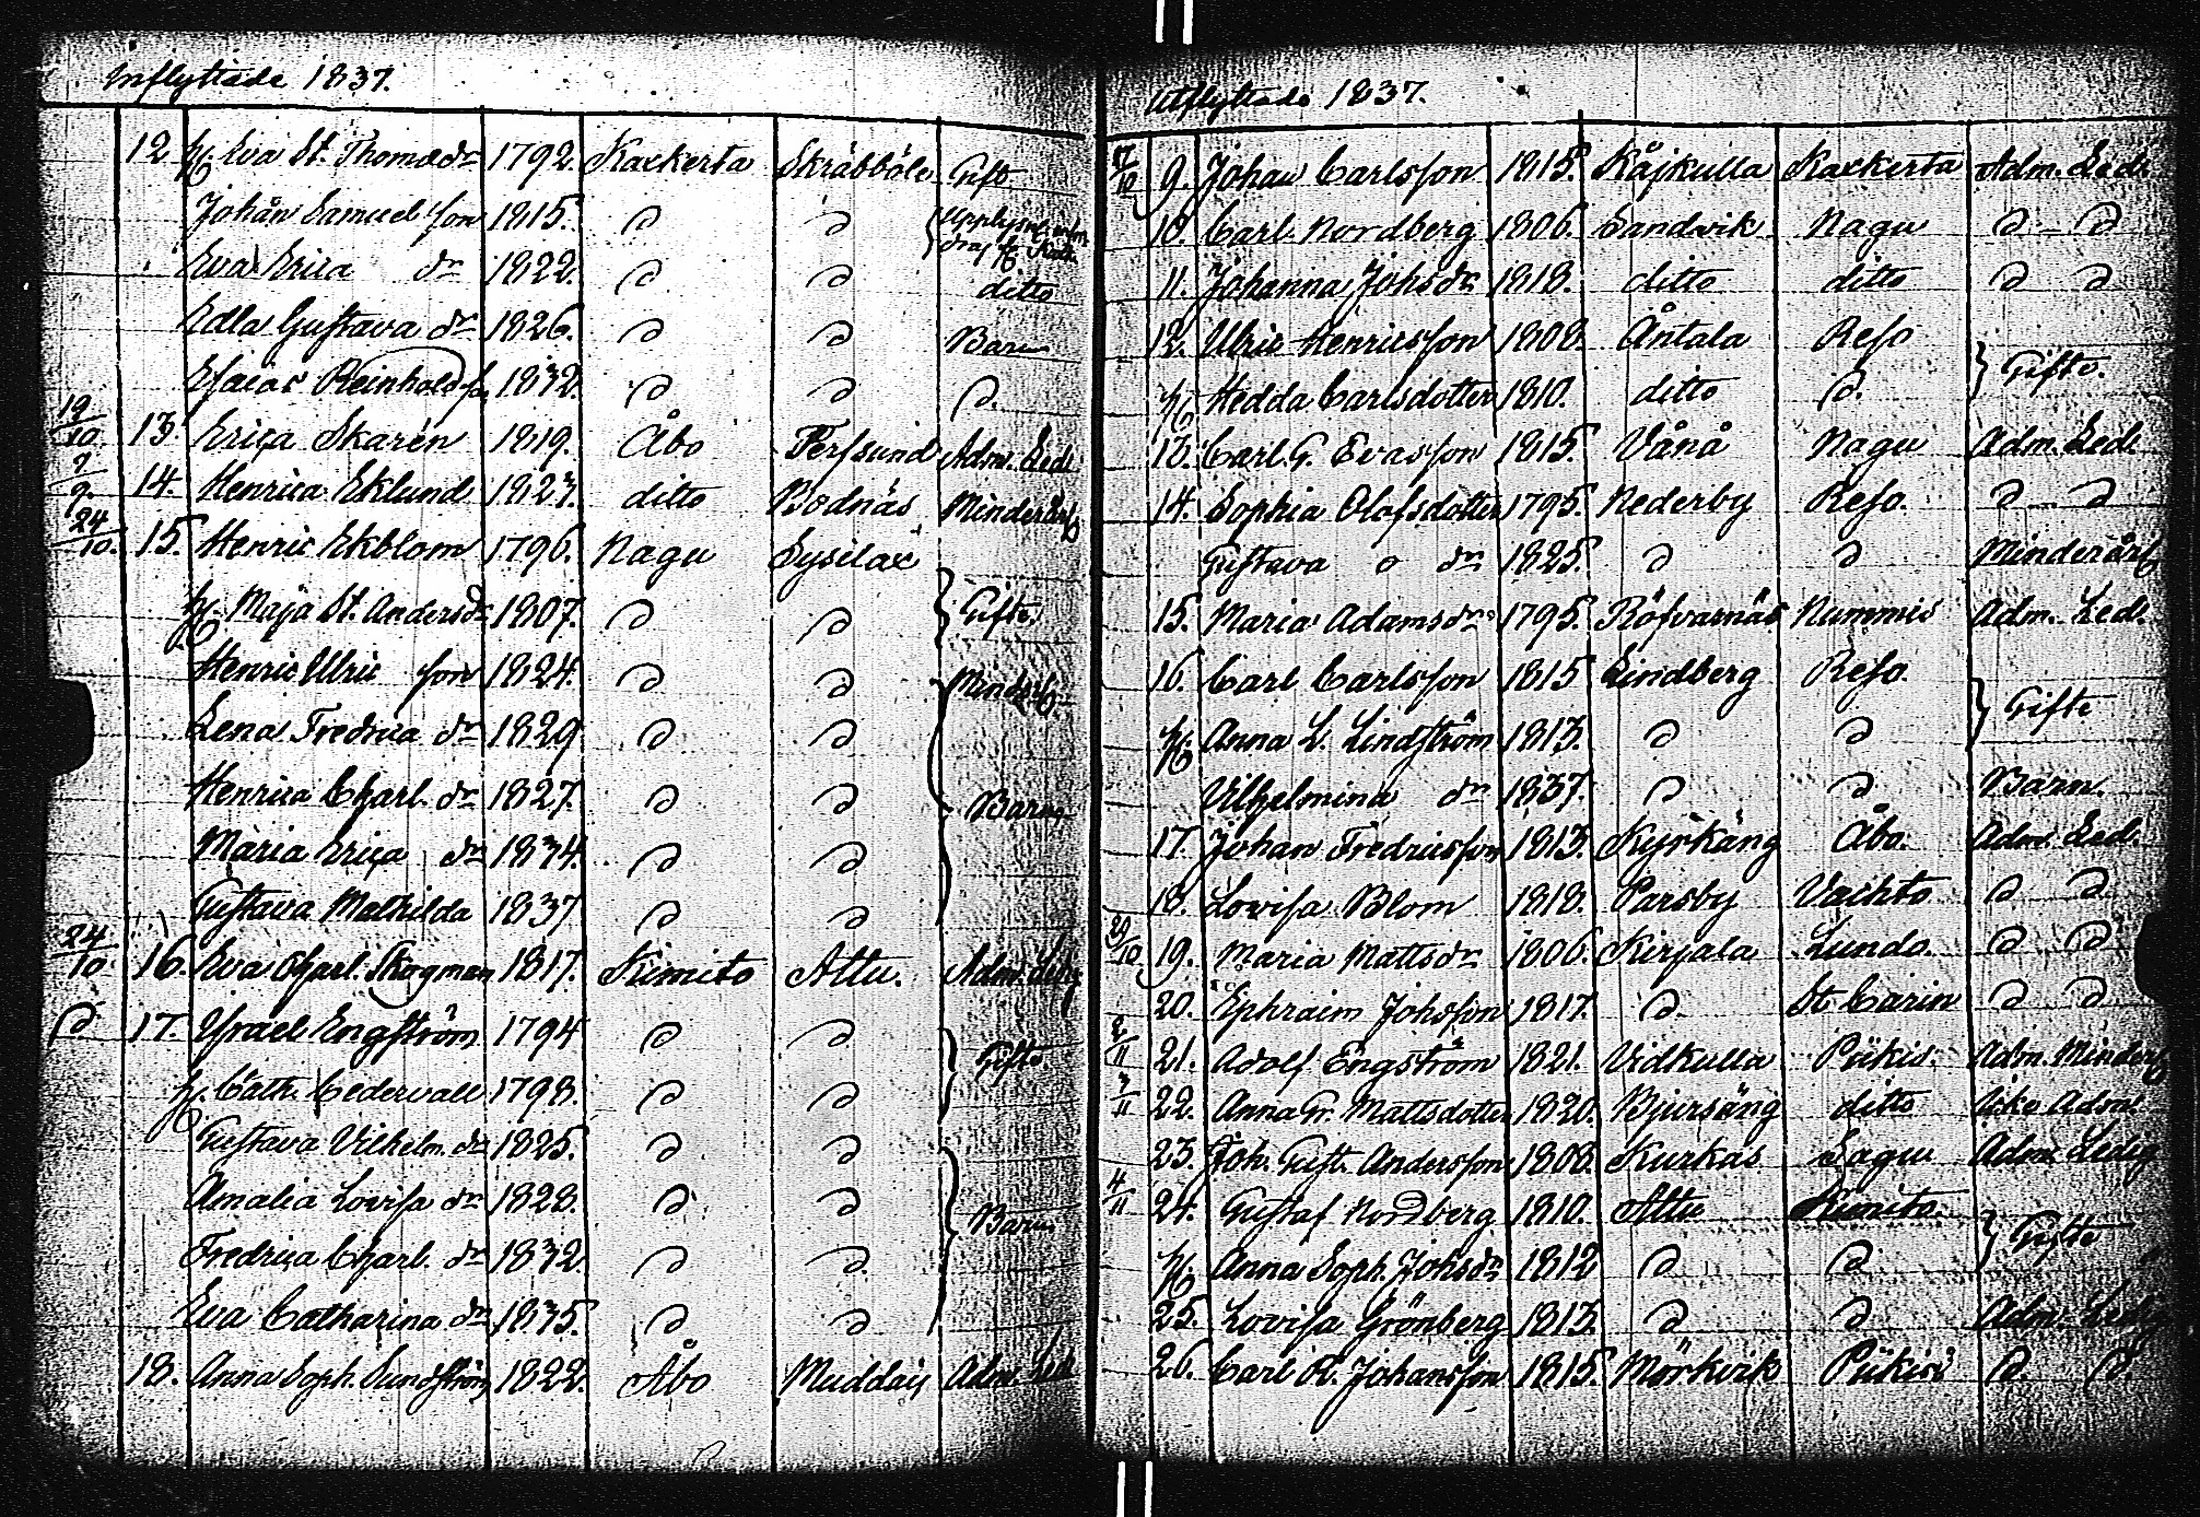 Inflyttade 1837.
12 h. Eva St. Thomædr 1792. Kackerta Skräbböle Gift
Johan Samuel son 1815. D D
Eva Erica dr 1822. D D ditto
Edla Gustava dr 1826. D D Barn
Esaias Reinhold s. 1832. D D D.
19/10 13. Erica Skarén 1819. Åbo Tersund Adm. Led.
9/9. 14. Henrica Eklund 1823. ditto Bodnäs Minderår.
24/10. 15. Henric Ekblom 1796. Nagu Sysilax
h. Maja St. Andersdr 1807. D D Gifte.
Henric Ulric son 1824. D D
Lena Fredrica dr 1829. D D
Henrica Charl. dr 1827. D D Barn
Maria Erica dr 1834. D D
Gustava Mathilda 1837 D D
24/10. 16. Eva Charl. Skogman 1817. Kimito Attu. Adm. Ledig
D. 17. Israel Engström 1794 D D
h. Cath. Cedervall 1798. D D Gifte.
Gustava Vilhelm. dr 1825. D D
Amalia Lovisa dr 1828. D D Barn
Fredrica Charl. dr 1832. D D
Eva Catharina dr 1835. D D
18. Anna Soph. Sundström 1822. Åbo Muddais Adm. Led.
Utflyttade 1837.
17/10 9. Johan Carlsson 1815. Kåjkulla Kackerta Adm. Led.
10. Carl Nordberg 1806. Sandvik Nagu D - D
11. Johanna Johsdr 1818. ditto ditto D D
12. Ulric Henricsson 1808. Åntala Reso
h. Hedda Carlsdotter 1810. ditto D. Gifte.
13. Carl G. Evasson 1815. Vånå Nagu Adm. Led.
14. Sophia Olofsdotter 1795. Nederby Reso. D - D
Gustava o dr 1825. D D Minderår.
15. Maria Adamsdr 1795. Röfvarnäs Nummis Adm. Led.
16. Carl Carlsson 1815 Lindberg Reso.
h. Anna L. Lindström 1813. D D Gifte
Vilhelmina dr 1837. D D Barn.
17. Johan Fredricsson 1813. Kyrkäng Åbo. Adm. Led.
18. Lovisa Blom 1818. Parsby Vachto D D
29/10 19. Maria Mattsdr 1806. Kirjala Lundo. D D
20. Ephraim Johsson 1817. D. St Carin D D
2/11 21. Adolf Engström 1821. Vidkulla Piikis. Adm. Minderå
3/11 22. Anna Gr. Mattsdotter 1820. Bjursäng ditto Icke Adm.
23. Joh. Gust. Andersson 1808. Kurkas Sagu Adm. Ledig
4/11 24. Gustaf Nordberg 1810. Attu Kimito.
h. Anna Soph. Johsdr 1812 D D Gifte
25. Lovisa Grönberg 1813. D D Adm. Ledig
26. Carl R. Johansson 1815. Mörkvik Piikis D. D.